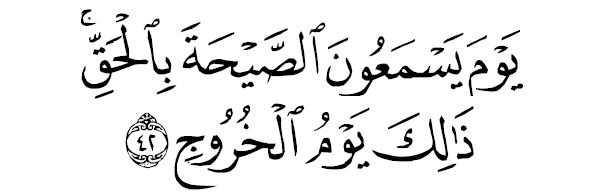 يَوْمَ يَسْمَعُونَ ٱلصَّيْحَةَ بِٱلْحَقِّۚ
ذَٰلِكَ يَوْمُ ٱلْخُرُوجِ ۝٤٢